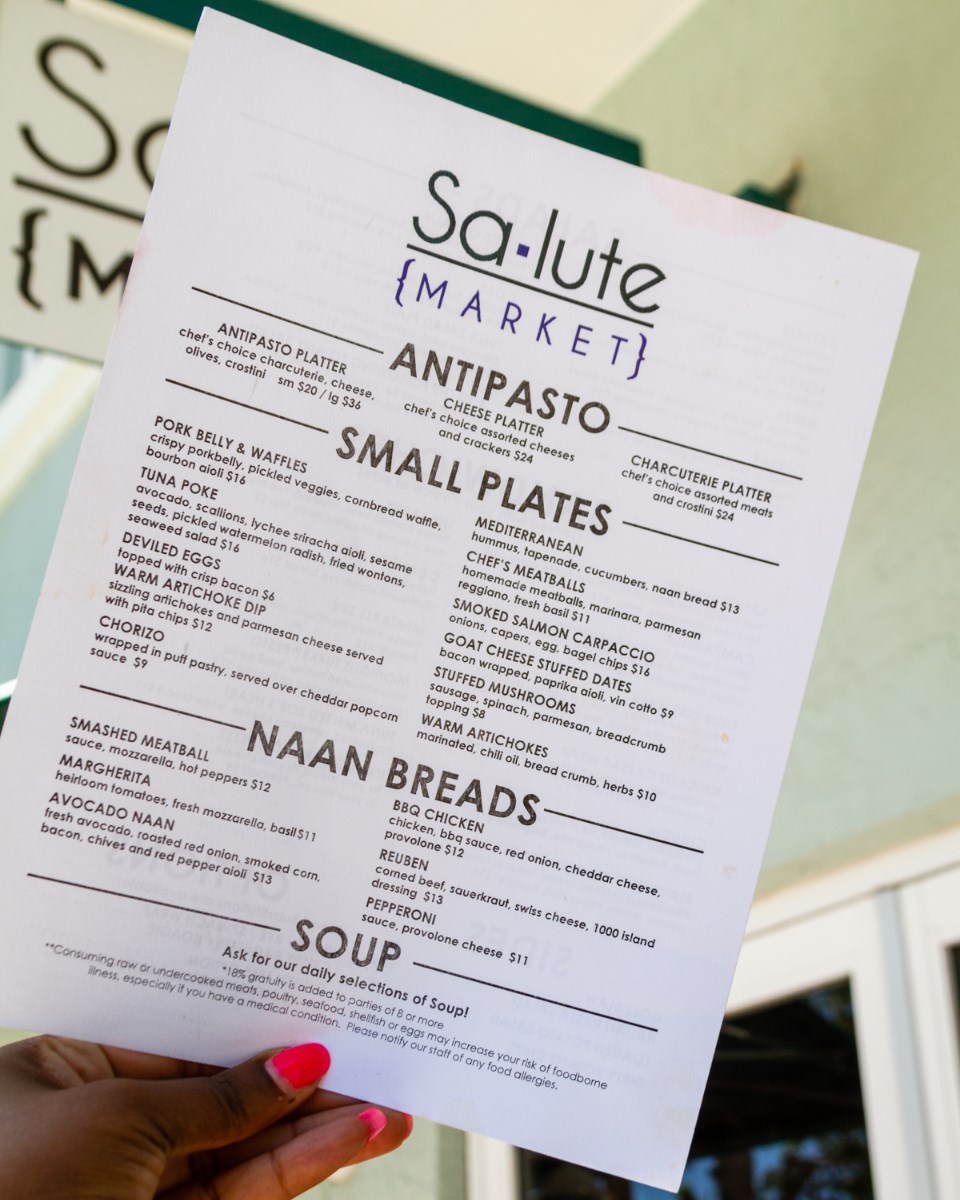 Sa
{M
Sa·lute
{MARKET}
ANTIPASTO
ANTIPASTO PLATTER
chef's choice charcuterie, cheese,
olives, crostini sm $20 / lg $36
CHEESE PLATTER
chef's choice assorted cheeses
and crackers $24
CHARCUTERIE PLATTER
chef's choice assorted meats
and crostini $24
SMALL PLATES
PORK BELLY & WAFFLES
crispy porkbelly, pickled veggies, cornbread waffle,
bourbon aioli $16
TUNA POKE
avocado, scallions, lychee sriracha aioli, sesame
seeds, pickled watermelon radish, fried wontons,
seaweed salad $16
DEVILED EGGS
topped with crisp bacon $6
WARM ARTICHOKE DIP
sizzling artichokes and parmesan cheese served
with pita chips $12
CHORIZO
wrapped in puff pastry, served over cheddar popcorn
sauce $9
MEDITERRANEAN
hummus, tapenade, cucumbers, naan bread $13
CHEF'S MEATBALLS
homemade meatballs, marinara, parmesan
reggiano, fresh basil $11
SMOKED SALMON CARPACCIO
onions, capers, egg, bagel chips $16
GOAT CHEESE STUFFED DATES
bacon wrapped, paprika aioli, vin cotto $9
STUFFED MUSHROOMS
sausage, spinach, parmesan, breadcrumb
topping $8
WARM ARTICHOKES
marinated, chili oil, bread crumb, herbs $10
NAAN BREADS
SMASHED MEATBALL
sauce, mozzarella, hot peppers $12
MARGHERITA
heirloom tomatoes, fresh mozzarella, basil $11
AVOCADO NAAN
fresh avocado, roasted red onion, smoked corn,
bacon, chives and red pepper aioli $13
BBQ CHICKEN
chicken, bbq sauce, red onion, cheddar cheese,
provolone $12
REUBEN
corned beef, sauerkraut, swiss cheese, 1000 island
dressing $13
PEPPERONI
sauce, provolone cheese $11
SOUP
Ask for our daily selections of Soup!
*18% gratuity is added to parties of 8 or more
**Consuming raw or undercooked meats, poultry, seafood, shellfish or eggs may increase your risk of foodborne
illness, especially if you have a medical condition. Please notify our staff of any food allergies.